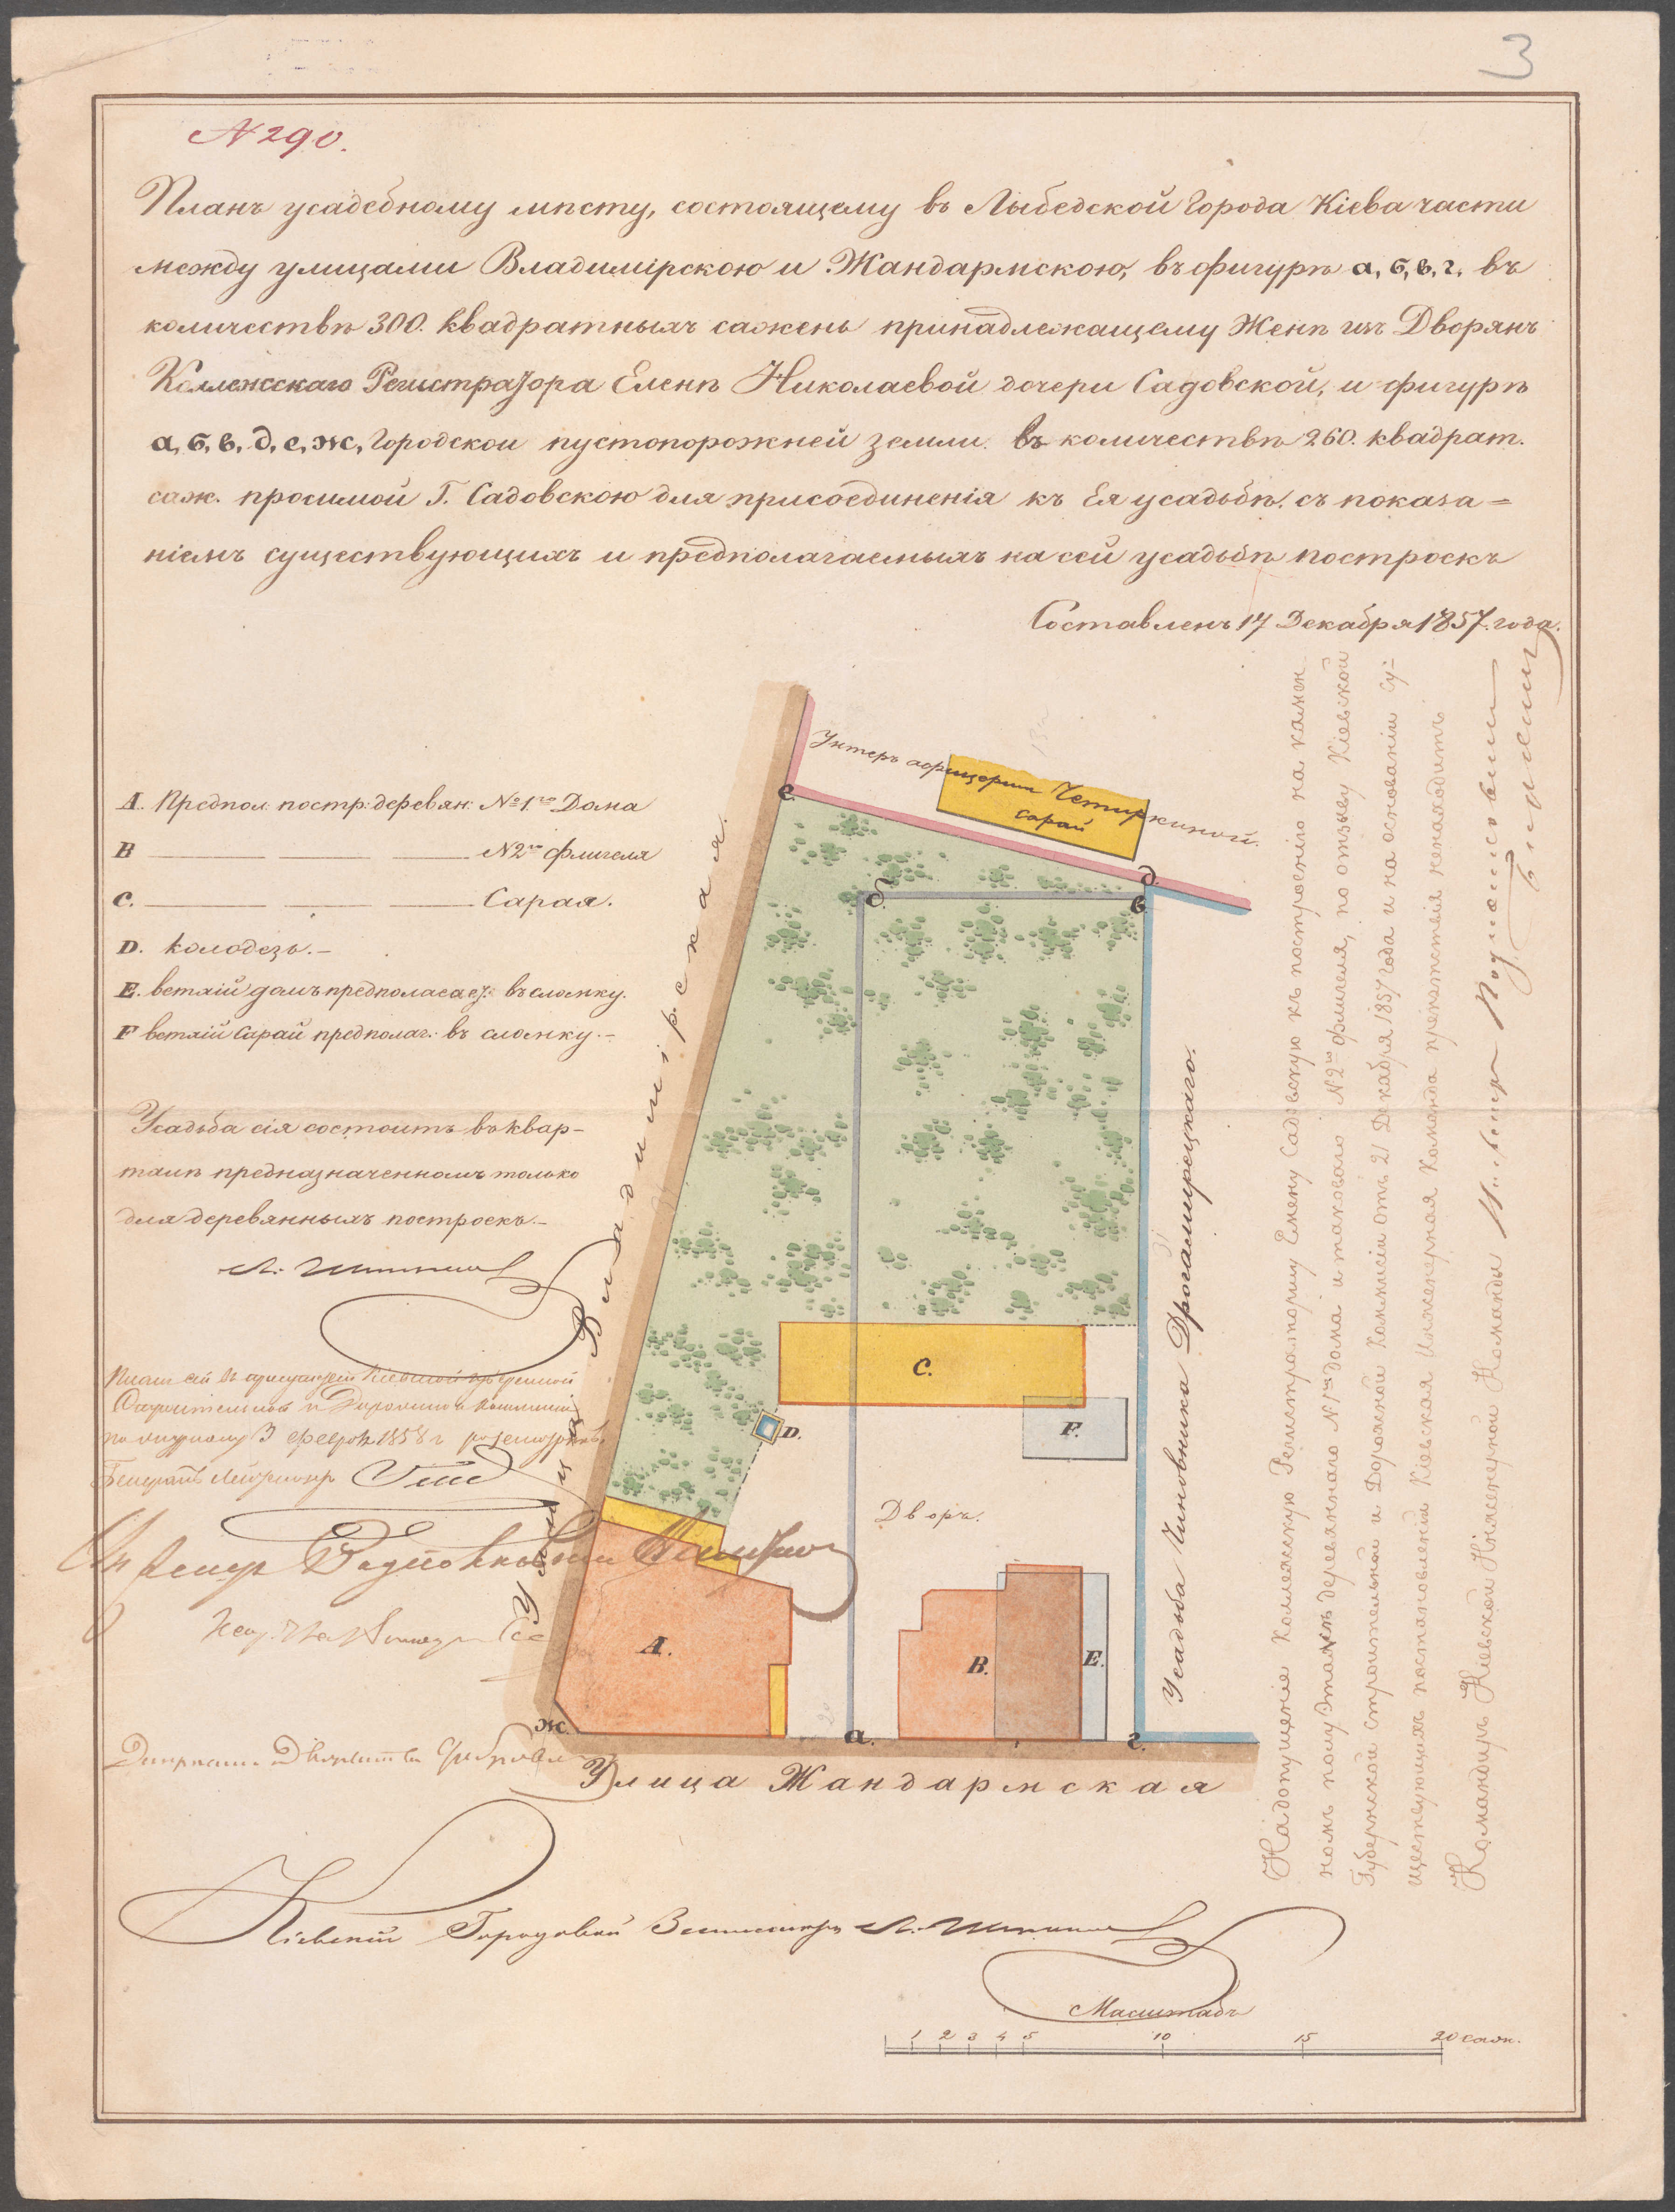 3
N 290.
Планъ усадебному мѣсту, состоящему въ Лыбедской Города Кіева части
между улицами Владимірскою и Жандармскою, въ фигурѣ а, б, в, г, въ
количествѣ 300. квадратныхъ сажень принадлежащему Женѣ изъ Дворянъ
Коллежскаго Регистратора Еленѣ Николаевой дочери Садовской, и фигурѣ
а, б, в, д, е, ж, Городской пустопорожней земли въ количествѣ 260. квадрат.
саж. просимой Г. Садовскою для присоединенія къ Ея усадьбѣ, съ показа=
ніемъ существующихъ и предполагаемыхъ на сей усадьбѣ построекъ
Составленъ 17 Декабря 1857. года.
А. Предпол: постр: деревян: №1го Дома
В N2го флигеля
С. Сарая.
D. колодезь.–
Е. ветхій домъ предполагает: въ сломку.
F ветхій Сарай предполаг: въ сломку.–
Усадьба сія состоитъ въ квар-
талѣ предназначенномъ только
для деревянныхъ построекъ.–
Планъ сей въ Кіевской Губернской
Строительной и Дорожной Коммисіи
по журналу 3 Февраля 1858 г
Генералъ Маіоръ
Унтеръ офицерши Четыркиной.
сарай
е.
д.
б.
в.
С.
F.
D.
Дворъ.
А.
В.
Е.
ж.
а.
г.
Улица Владимірская.
Усадьба Чиновника Драгамирецкаго.
Улица Жандармская
На допущеніе Коллежскую Регистраторшу Елену Садовскую къ построенію на камен
номъ полуэтажѣ деревяннаго №1го дома и таковаго N2го флигеля, по отзыву Кіевской
Губернской строительной и Дорожной Коммисіи отъ 21 Декабря 1857 года и на основаніи су-
ществующихъ постановленій Кіевская Инженерная Команда препятствія ненаходитъ
Командиръ Кіевской Инженерной Команды
Кіевскій Городовой Землемѣръ
Масштабъ
1 2 3 4 5 10 15 20 саж.